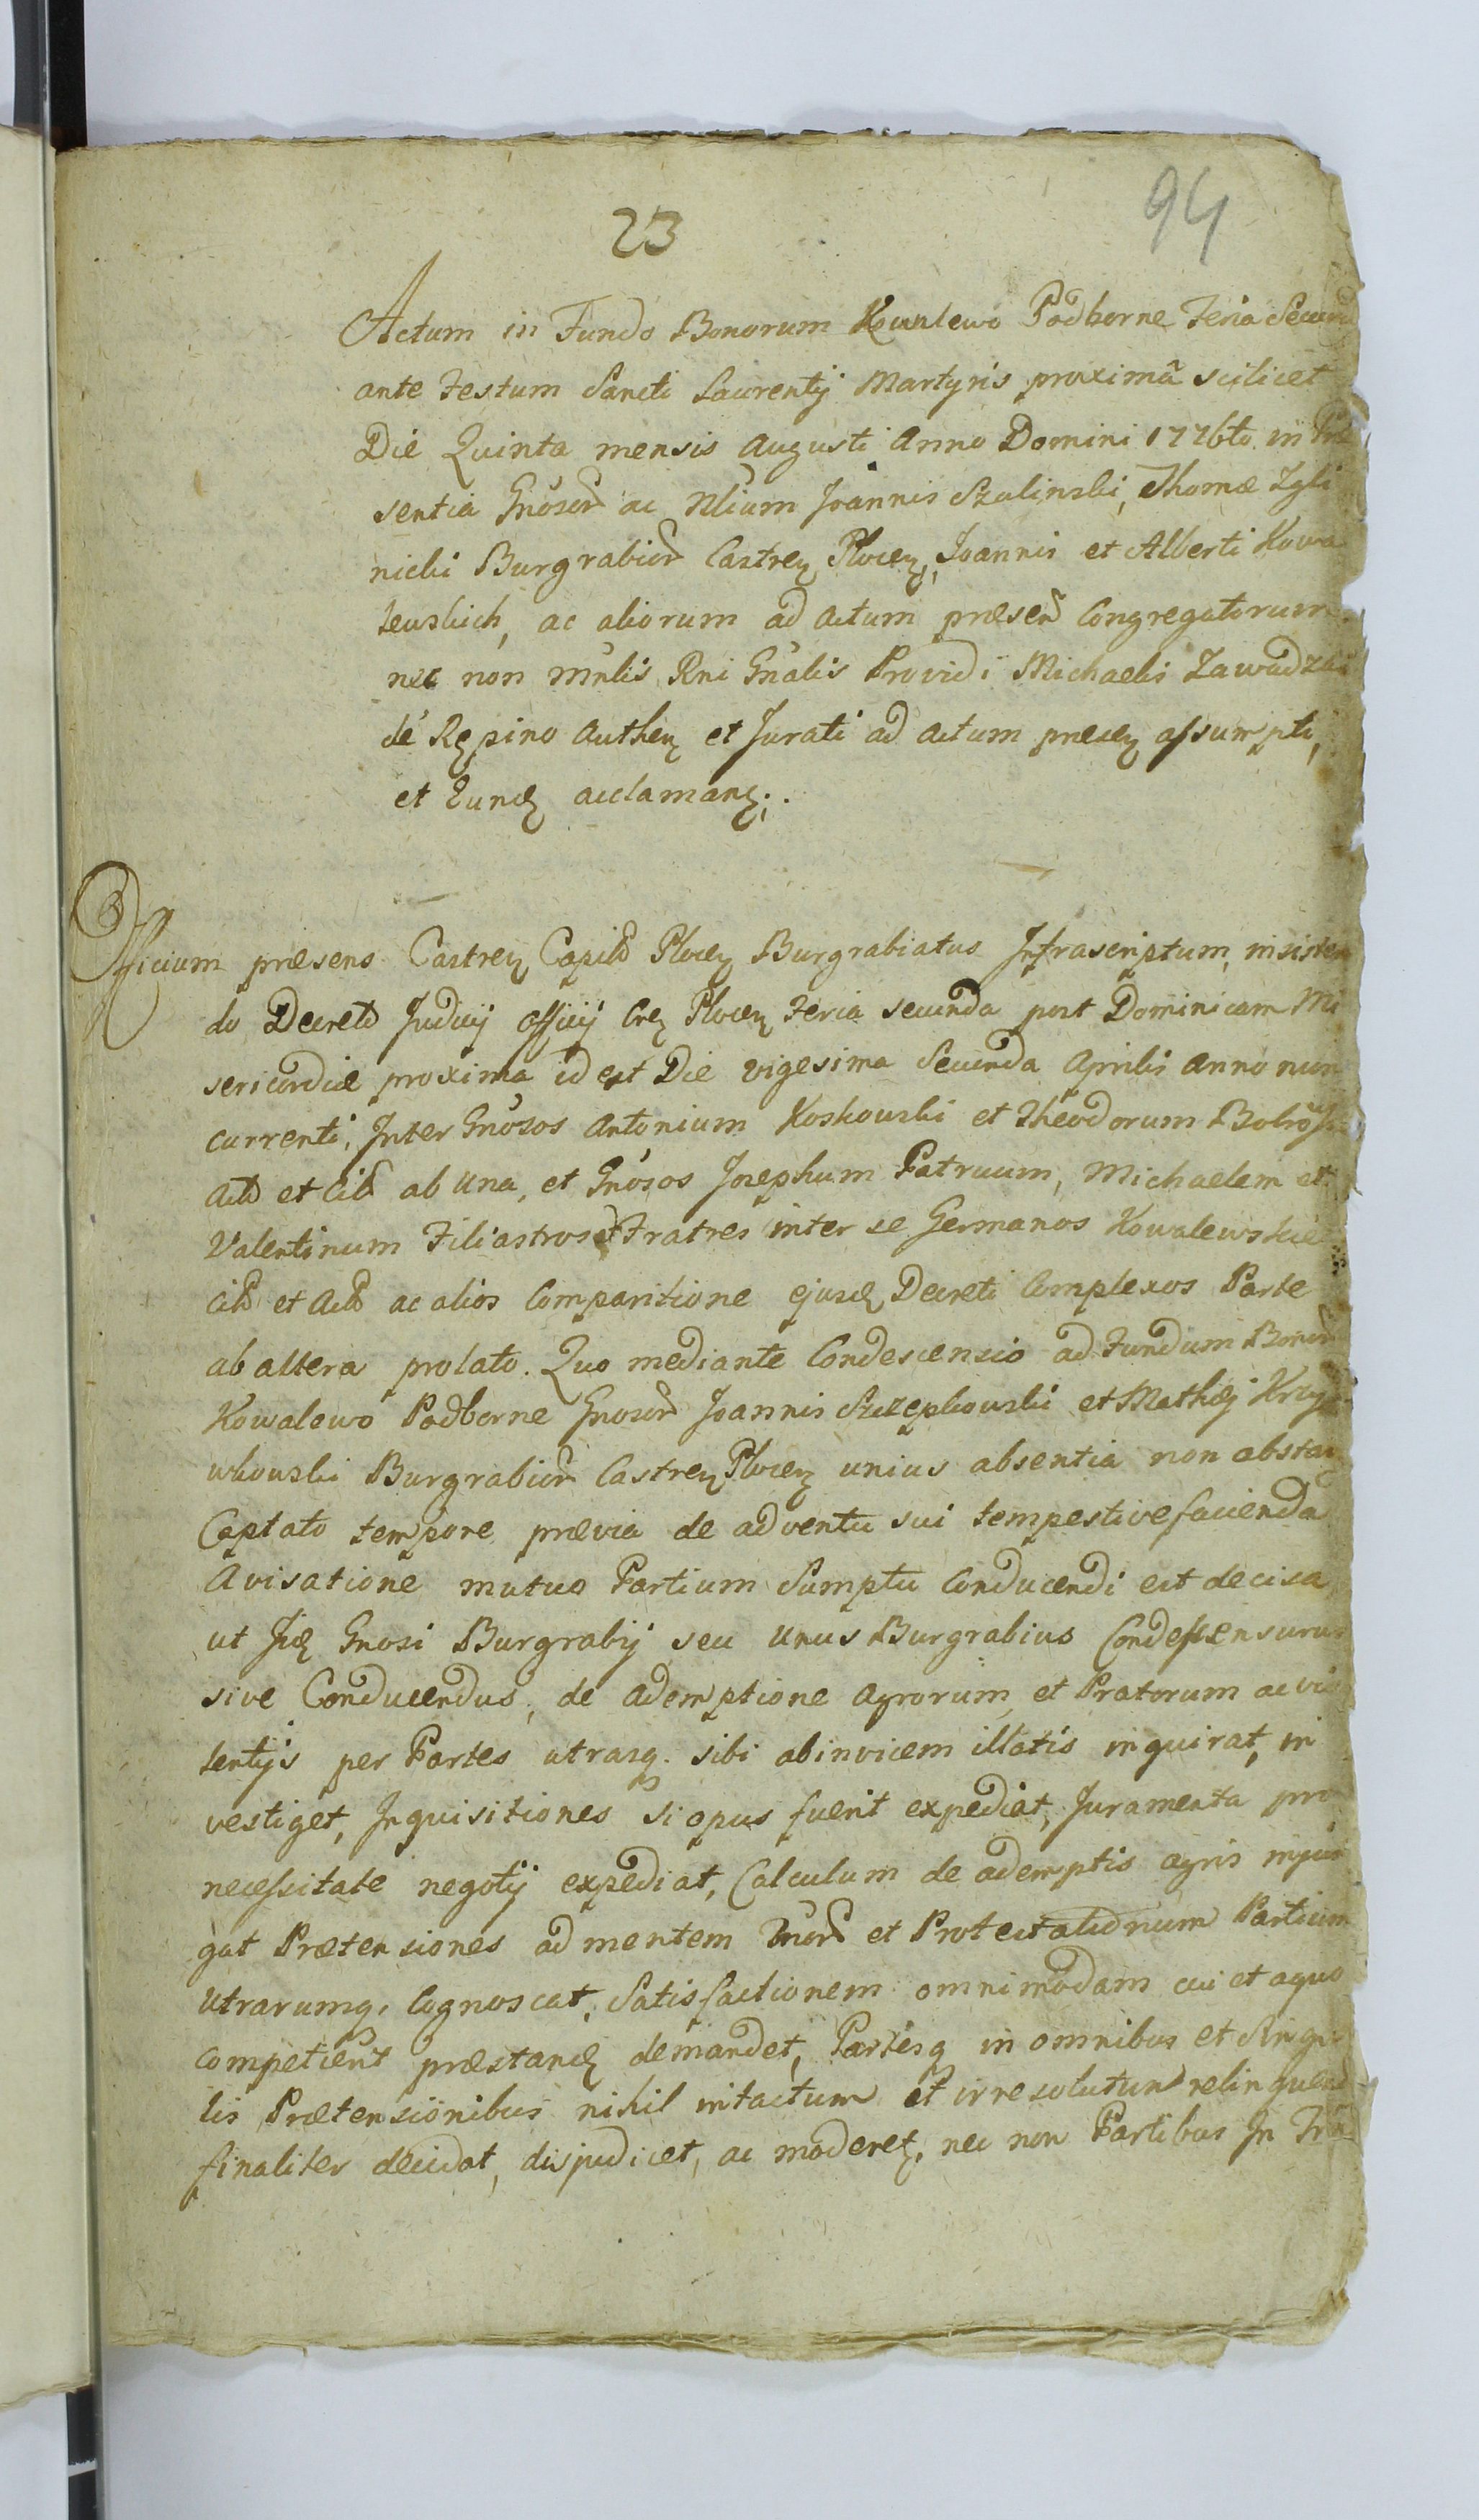 23
94
Actum in Fundo Bonorum Kowalewo Podborne Feria Secund
ante Festum Sancti Laurentij Martyris proximã scilicet
Die Quinta mensis Augusti Anno Domini 1776to in Præ
sentia Gñosor ac Nlium Joannis Szulinski, Thomæ Zgli
nicki Burgrabior Castreñ Plocen, Joannis et Alberti Kowa
lewskich, ac aliorum ad actum præsen Congregatorum
nec non Mnlis Rni Gñalis Providi Michaelis Zawadzki
de Rępino Authen et Jurati ad actum præsen assumpti,
et Eund acclamanę.
Officium præsens Castren Capitl Plocen Burgrabiatus Infrascriptum, insisten
do Decreto Judicij Officij Cren Plocen Feria secunda post Dominicam Mi
sericordiæ proxima id est Die vigesima Secunda Aprilis Anno nun
currenti, Inter Gñosos Antonium Koskowski et Theodorum
et ab una, et Gñosos Josephum Patruum, Michaelem et
Valentinum Filiastros Fratres inter se Germanos Kowalewskie
et ac alios Comparitione ejusd Decreti Complexos Parte
ab altera prolato. Quo mediante Condescensio ad Fundum Bonor
Kowalewo Podborne Gnosor Joannis Szczepkowski et Mathæj
Burgrabior Castren Plocen unius absentia non obstan
Captato tempore prævia de adventu sui tempestive facienda
Avisatione mutuo Partium Sumptu Conducendi est decisa,
ut Jid Gnosi Burgrabij seu Unus Burgrabius Condescensurus
sive Conducendus, de ademptione Agrorum, et Pratorum ac vio
lentijs per Partes utrasq. sibi abinvicem illatis inquirat, in
vestiget, Inquisitiones si opus fuerit expediat, Juramenta pro
necessitate negotij expediat, Calculum de ademptis agris injun
gat Prætensiones ad mentem et Protestationum Partium
Utrarumq. Cognoscat, Satisfactionem omnimodam cui et a quo
competient præstand demandet, Partesq in omnibus et Singu
lis Prætensionibus nihil intactum et irresolutum relinquend
finaliter decidat, disjudicet, ac moderet, nec non Partibus In